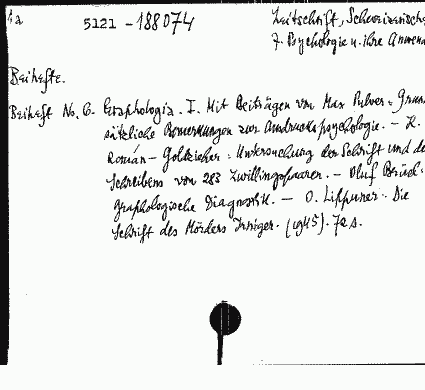 1a 5121 - 188074 Zeitschrift, Schweizerische
f. Psychologie u. ihre Anwend
Beihefte.
Beiheft No. 6. Graphologia. I. Mit Beiträgen von Max Pulver: Grund
sätzliche Bemerkungen zur Ausdruckspsychologie. – K.
Román-Goldzieher: Untersuchung der Schrift und de
Schreibens von 283 Zwillingspaaren. – Oluf Brück:
Graphologische Diagnostik. – O. Lippuner: Die
Schrift des Mörders Irniger. (1945). 72 S.